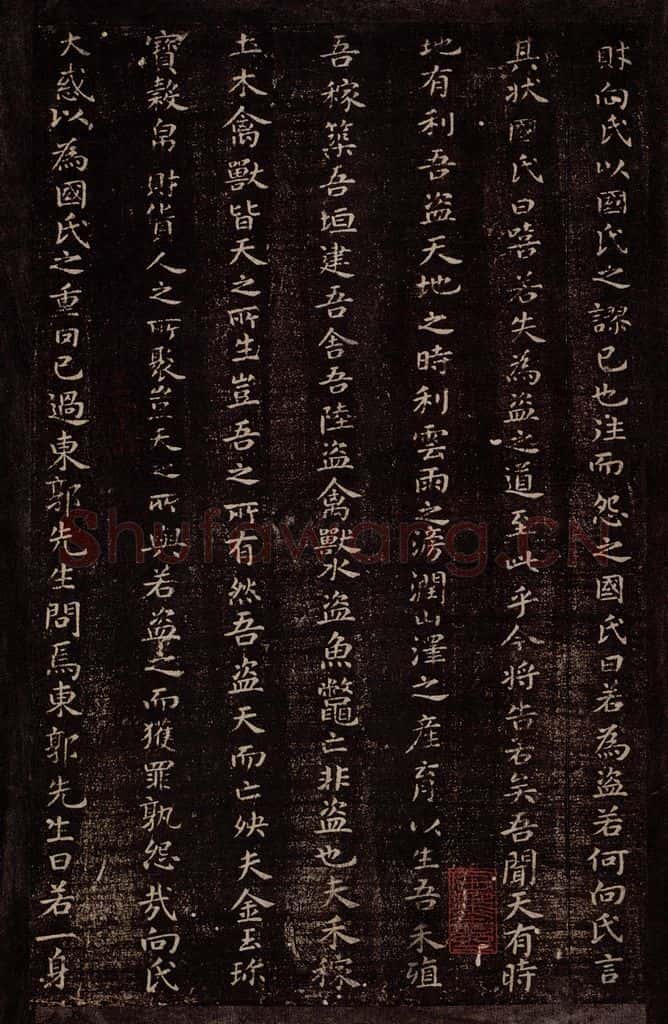 財向氏以國氏之謬己也往而怨之國氏曰若為盜若何向氏言
其狀國氏曰嘻若失為盜之道至此乎今將告若矣吾聞天有時
地有利吾盜天地之時利雲雨之滂潤山澤之產育以生吾禾殖
吾稼築吾垣建吾舍吾陸盜禽獸水盜魚鼈亡非盜也夫禾稼
土木禽獸皆天之所生豈吾之所有然吾盜天而亡殃夫金玉珍
寶穀帛財貨人之所聚豈天之所與若盜之而獲罪孰怨哉向氏
大惑以為國氏之重罔己過東郭先生問焉東郭先生曰若一身
Shufawang.CN